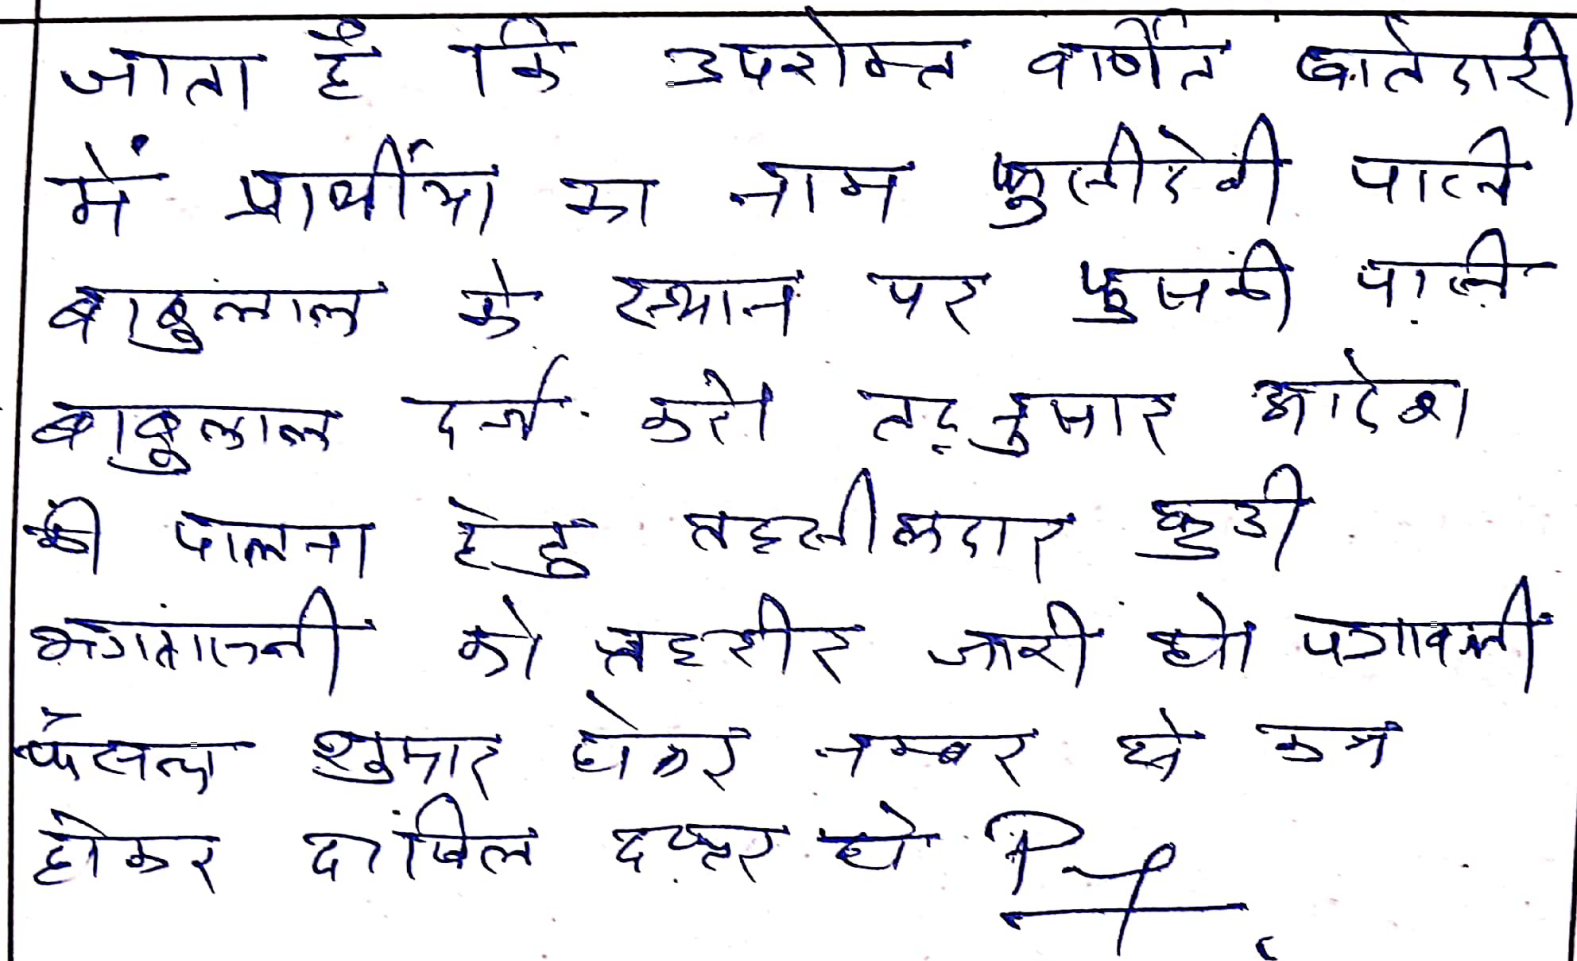 जाता है कि उपरोक्त वर्णित खातेदारी
में प्रार्थीया का नाम फुलीदेवी पत्नि
बाबुलाल के स्थान पर पत्नि
बाबुलाल दर्ज करे। तद्नुसार आदेश
की पालना हेतु तहसीलदार कुडी
भगतासनी को तहरीर जारी हो। पत्रावली
फैसल शुमार होकर नम्बर से कम
होकर दाखिल दफ्तर हो